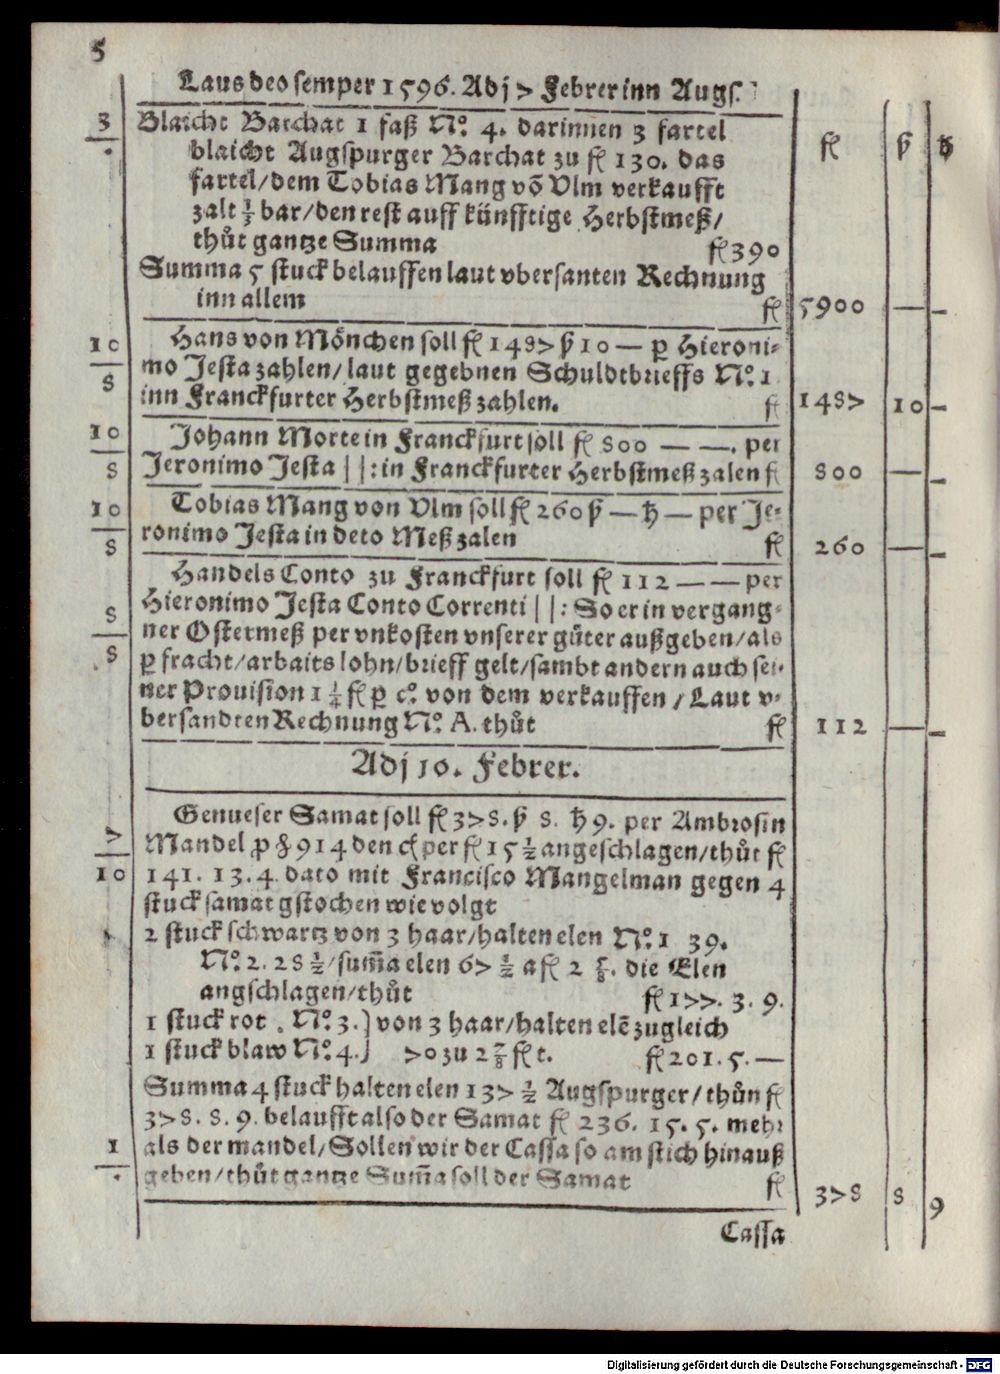 5
Laus deo semper 1596. Adj 7 Febrer inn Augs.
3 Blaicht Barchat 1 faß N° 4. darinnen 3 fartel
blaicht Augspurger Barchat zu fl 130. das fl ß ₰
fartel/dem Tobias Mang võ Vlm verkaufft
zalt 1/3 bar/den rest auff künfftige Herbstmeß/
thůt gantze Summa fl 390
Summa 5 stuck belauffen laut vbersanten Rechnung
inn allem fl 5900 — —
10 Hans von Mönchen soll fl 1487 ß 10 — ꝑ Hieroni-
8 mo Jesta zahlen/laut gegebnen Schuldtbrieffs N°. 1
inn Franckfurter Herbstmeß zahlen. fl 1487 10 —
10 Johann Morte in Franckfurt soll fl 800 — —. per
8 Jeronimo Jesta ||: in Franckfurter Herbstmeß zalen fl 800 — —
10 Tobias Mang von Vlm soll fl 260 ß — ₰ — per Je-
8 ronimo Jesta in deto Meß zalen fl 260 — —
Handels Conto zu Franckfurt soll fl 112 — — per
8 Hieronimo Jesta Conto Correnti ||: So er in vergang-
ner Ostermeß per vnkosten vnserer güter außgeben/als
8 ꝑ fracht/arbaits lohn/brieff gelt/sambt andern auch sei-
ner Prouision 1 1/4 fl ꝑ c°. von dem verkauffen/Laut v-
bersandten Rechnung N°. A. thůt fl 112 — —
Adj 10. Febrer.
Genueser Samat soll fl 378. ß 8. ₰ 9. per Ambrosin
7 Mandel ꝓ ℔ 914 den ct per fl 15 1/2 angeschlagen/thůt fl
10 141. 13. 4. dato mit Francisco Mangelman gegen 4
stuck samat gstochen wie volgt
2 stuck schwartz von 3 haar/halten elen N°. 1 39.
N°. 2. 28 1/2/sum̃a elen 67 1/2 a fl 2 5/8. die Elen
angschlagen/thůt fl 177. 3. 9.
1 stuck rot . N°. 3.) von 3 haar/halten elẽ zugleich
1 stuck blaw N°. 4.) 70 zu 2 7/8 fl t. fl 201. 5. —
Summa 4 stuck halten elen 137 1/2 Augspurger/thůn fl
378. 8. 9. belaufft also der Samat fl 236. 15. 5. mehr
1 als der mandel/Sollen wir der Cassa so am stich hinauß
geben/thůt gantze Sum̃a soll der Samat fl 378 8 9
Cassa
Digitalisierung gefördert durch die Deutsche Forschungsgemeinschaft - DFG